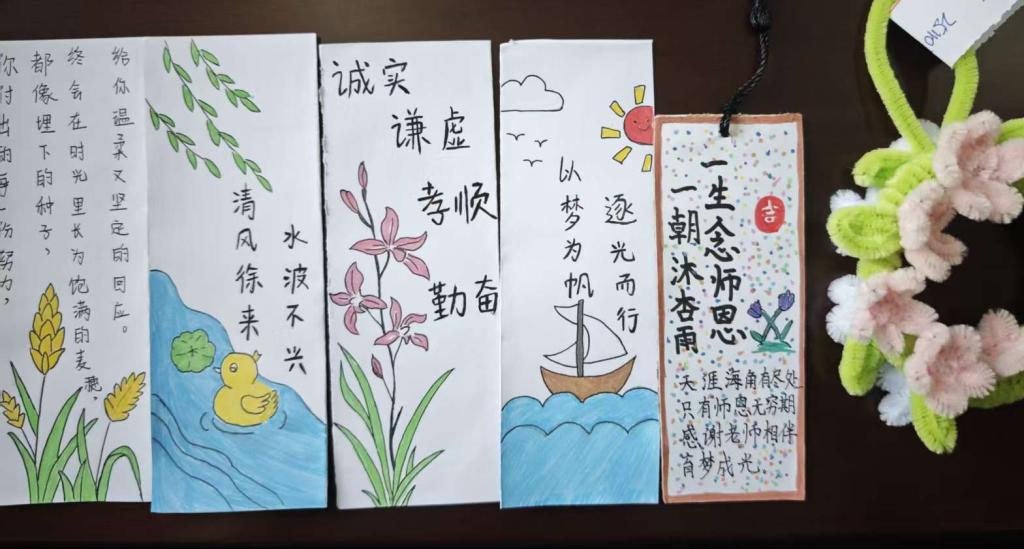 你付出的每一份努力，
都像埋下的种子，
终会在时光里长为饱满的麦穗，
给你温柔又坚定的回应。
清风徐来
水波不兴
诚实
谦虚
孝顺
勤奋
以梦为帆
逐光而行
一朝沐杏雨
一生念师恩
吉
天涯海角有尽处
只有师恩无穷期
感谢老师相伴
育梦成光